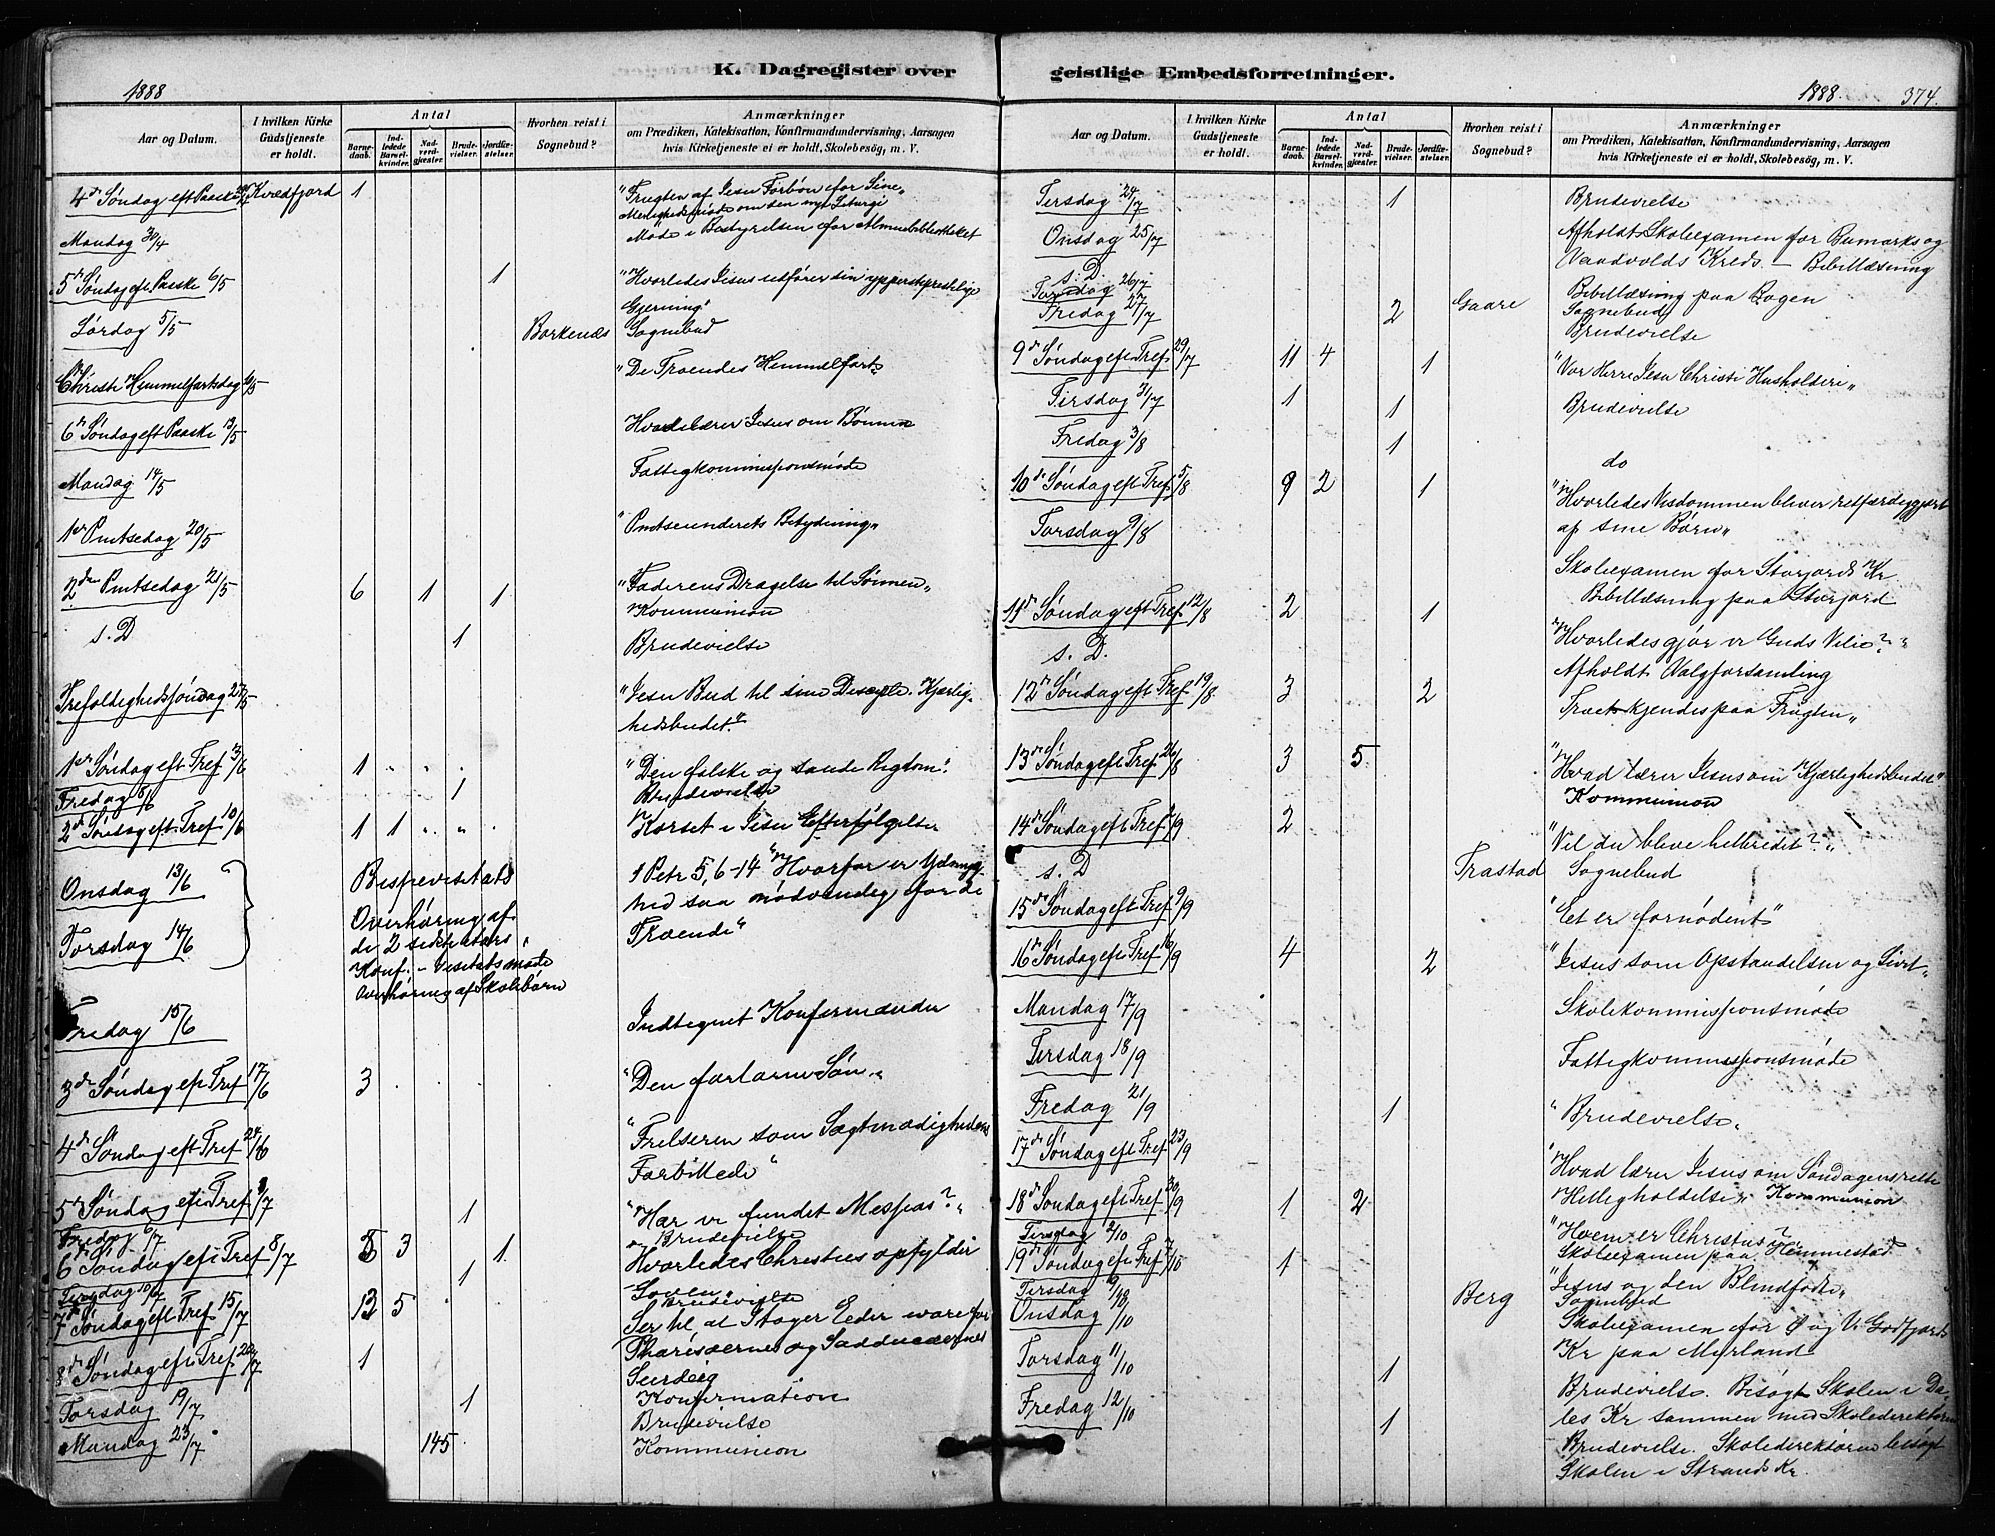 K. Dagregister over geistlige Embedsforretninger.
1888
1888.
374.
Aar og Datum.
I hvilken Kirke Gudstjeneste er holdt.
Antal
Barnedaab.
Indledede Barselkvinder.
Nadverdgjæster.
Brudevielser.
Jordfæstelser.
Hvorhen reist i Sognebud?
Anmærkninger
om Prædiken, Katekisation, Konfirmandundervisning, Aarsagen
hvis Kirketjeneste ei er holdt, Skolebesög, m. V.
4de Søndag eft Paaske 29/4 Kvædfjord 1 "Frugten af Jesu Forbøn for Sine"
Menighedsmøde om den nye Liturgi
Mandag 30/4 Møde i Bestyrelsen for Almuebibliotheket
5te Søndag eft. Paaske 6/5 1 "Hvorledes Jesus udfører sin ypperstepræstelige
Gjerning"
Lørdag 5/5 Borkenes Sognebud
Christi Himmelfartsdag 10/5 "De Troendes Himmelfart"
6te Søndag eft Paaske 13/5 Hvad lærer Jesus om Bønnen
Mandag 14/5 Fattigkommissionsmøde
1ste Pintsedag 20/5 "Pintseunderets Betydning"
2den Pintsedag 21/5 6 1 1 "Faderens Dragelse til Sønnen"
Kommunion
s. D 1 Brudevielse
Trefoldighedssøndag 27/5 "Jesu Bud til sine Disciple. Kjærlig-
hedsbudet."
1ste Søndag eft Tref 3/6 1 "Den falske og sande Rigdom".
Fredag 8/6 1 Brudevielse
2den Søndag eft. Tref 10/6 1 1 Korset i Jesu Efterfølgelse
Onsdag 13/6 Bispevisitats 1 Petr 5, 6-14 "Hvorfor er Ydmyg-
Overhøring af hed saa nødvendig for de
Torsdag 14/6 de 2 sidste Aars Troende"
Konf. - Visitatsmøde
Overhøring af Skolebørn
Fredag 15/6 Indtegnet Konfirmander
3die Søndag eft Tref 17/6 3 "Den fortabte Søn"
4de Søndag eft Tref 24/6 "Frelseren som Sagtmodighedens
Forbillede"
5te Søndag eft Tref 1/7 1 "Har vi fundet Messias?"
Fredag 6/7 Brudevielse
6te Søndag eft Tref 8/7 3 1 Hvorledes Christus opfylder
Loven"
Tirsdag 10/7 1 Brudevielse
7de Søndag eft Tref 15/7 13 5 Se til, at I tager Eder vare for
Pharisæernes og Sadducæernes
8de Søndag eft Tref 22/7 1 Surdeig
Konfirmation
Torsdag 19/7 1 Brudevielse
Mandag 23/7 145 Kommunion
Aar og Datum.
I hvilken Kirke Gudstjeneste er holdt.
Antal
Barnedaab.
Indledede Barselkvinder.
Nadverdgjæster.
Brudevielser.
Jordfæstelser.
Hvorhen reist i Sognebud?
Anmærkninger
om Prædiken, Katekisation, Konfirmandundervisning, Aarsagen
hvis Kirketjeneste ei er holdt, Skolebesög, m. V.
Tirsdag 24/7 1 Brudevielse
Onsdag 25/7 Afholdt Skoleexamen for Bumarks og
s. D. Vaadvolds Kreds. - Bibellæsning
Torsdag 26/7 Bibellæsning paa Bogen
Gaare Sognebud
Fredag 27/7 2 Brudevielse
9de Søndag eft Tref 29/7 11 4 1 "Vor Herre Jesu Christi Husholdere"
Tirsdag 31/7 1 1 Brudevielse
Fredag 3/8 1 do
10de Søndag eft Tref 5/8 9 2 1 "Hvorledes Visdommen bliver retfærdiggjort
af sine Børn"
Torsdag 9/8 Skoleexamen for Storjords Kr
Bibellæsning paa Storjord
11te Søndag eft Tref. 12/8 2 1 "Hvorledes gjør vi Guds Vilie?"
s. D. Afholdt Valgforsamling
12te Søndag eft Tref 19/8 3 2 Træet kjendes paa Frugten"
13de Søndag eft Tref 26/8 3 5 "Hvad lærer Jesus om Kjærlighedsbudet"
Kommunion
14de Søndag eft Tref 2/9 2 "Vil du blive helbredet?"
s. D Trastad Sognebud
15de Søndag eft Tref 9/9 "Et er fornødent"
16de Søndag eft Tref 16/9 4 2 "Jesus som Opstandelsen og Livet"
Mandag 17/9 Skolekommissionsmøde
Tirsdag 18/9 Fattigkommissionsmøde
Fredag 21/9 1 Brudevielse
17de Søndag eft Tref 23/9 "Hvad lærer Jesus om Søndagens rette
Helligholdelse" Kommunion
18de Søndag eft Tref 30/9 1 2 "Hvem er Christus?"
Tirsdag 2/10 Skoleexamen paa Hemmestad
19de Søndag eft Tref 7/10 1 "Jesus og den Blindfødte"
Tirsdag 9/10 Berg Sognebud
Onsdag 10/10 Skoleexamen for Ø og V. Godfjords
Kr paa Myrland
Torsdag 11/10 1 Brudevielse. Besøgt Skolen i Da-
les Kr sammen med Skoledirektøren
Fredag 12/10 1 Brudevielse. Skoledirektøren besøgt
Skolen i Strands Kr.